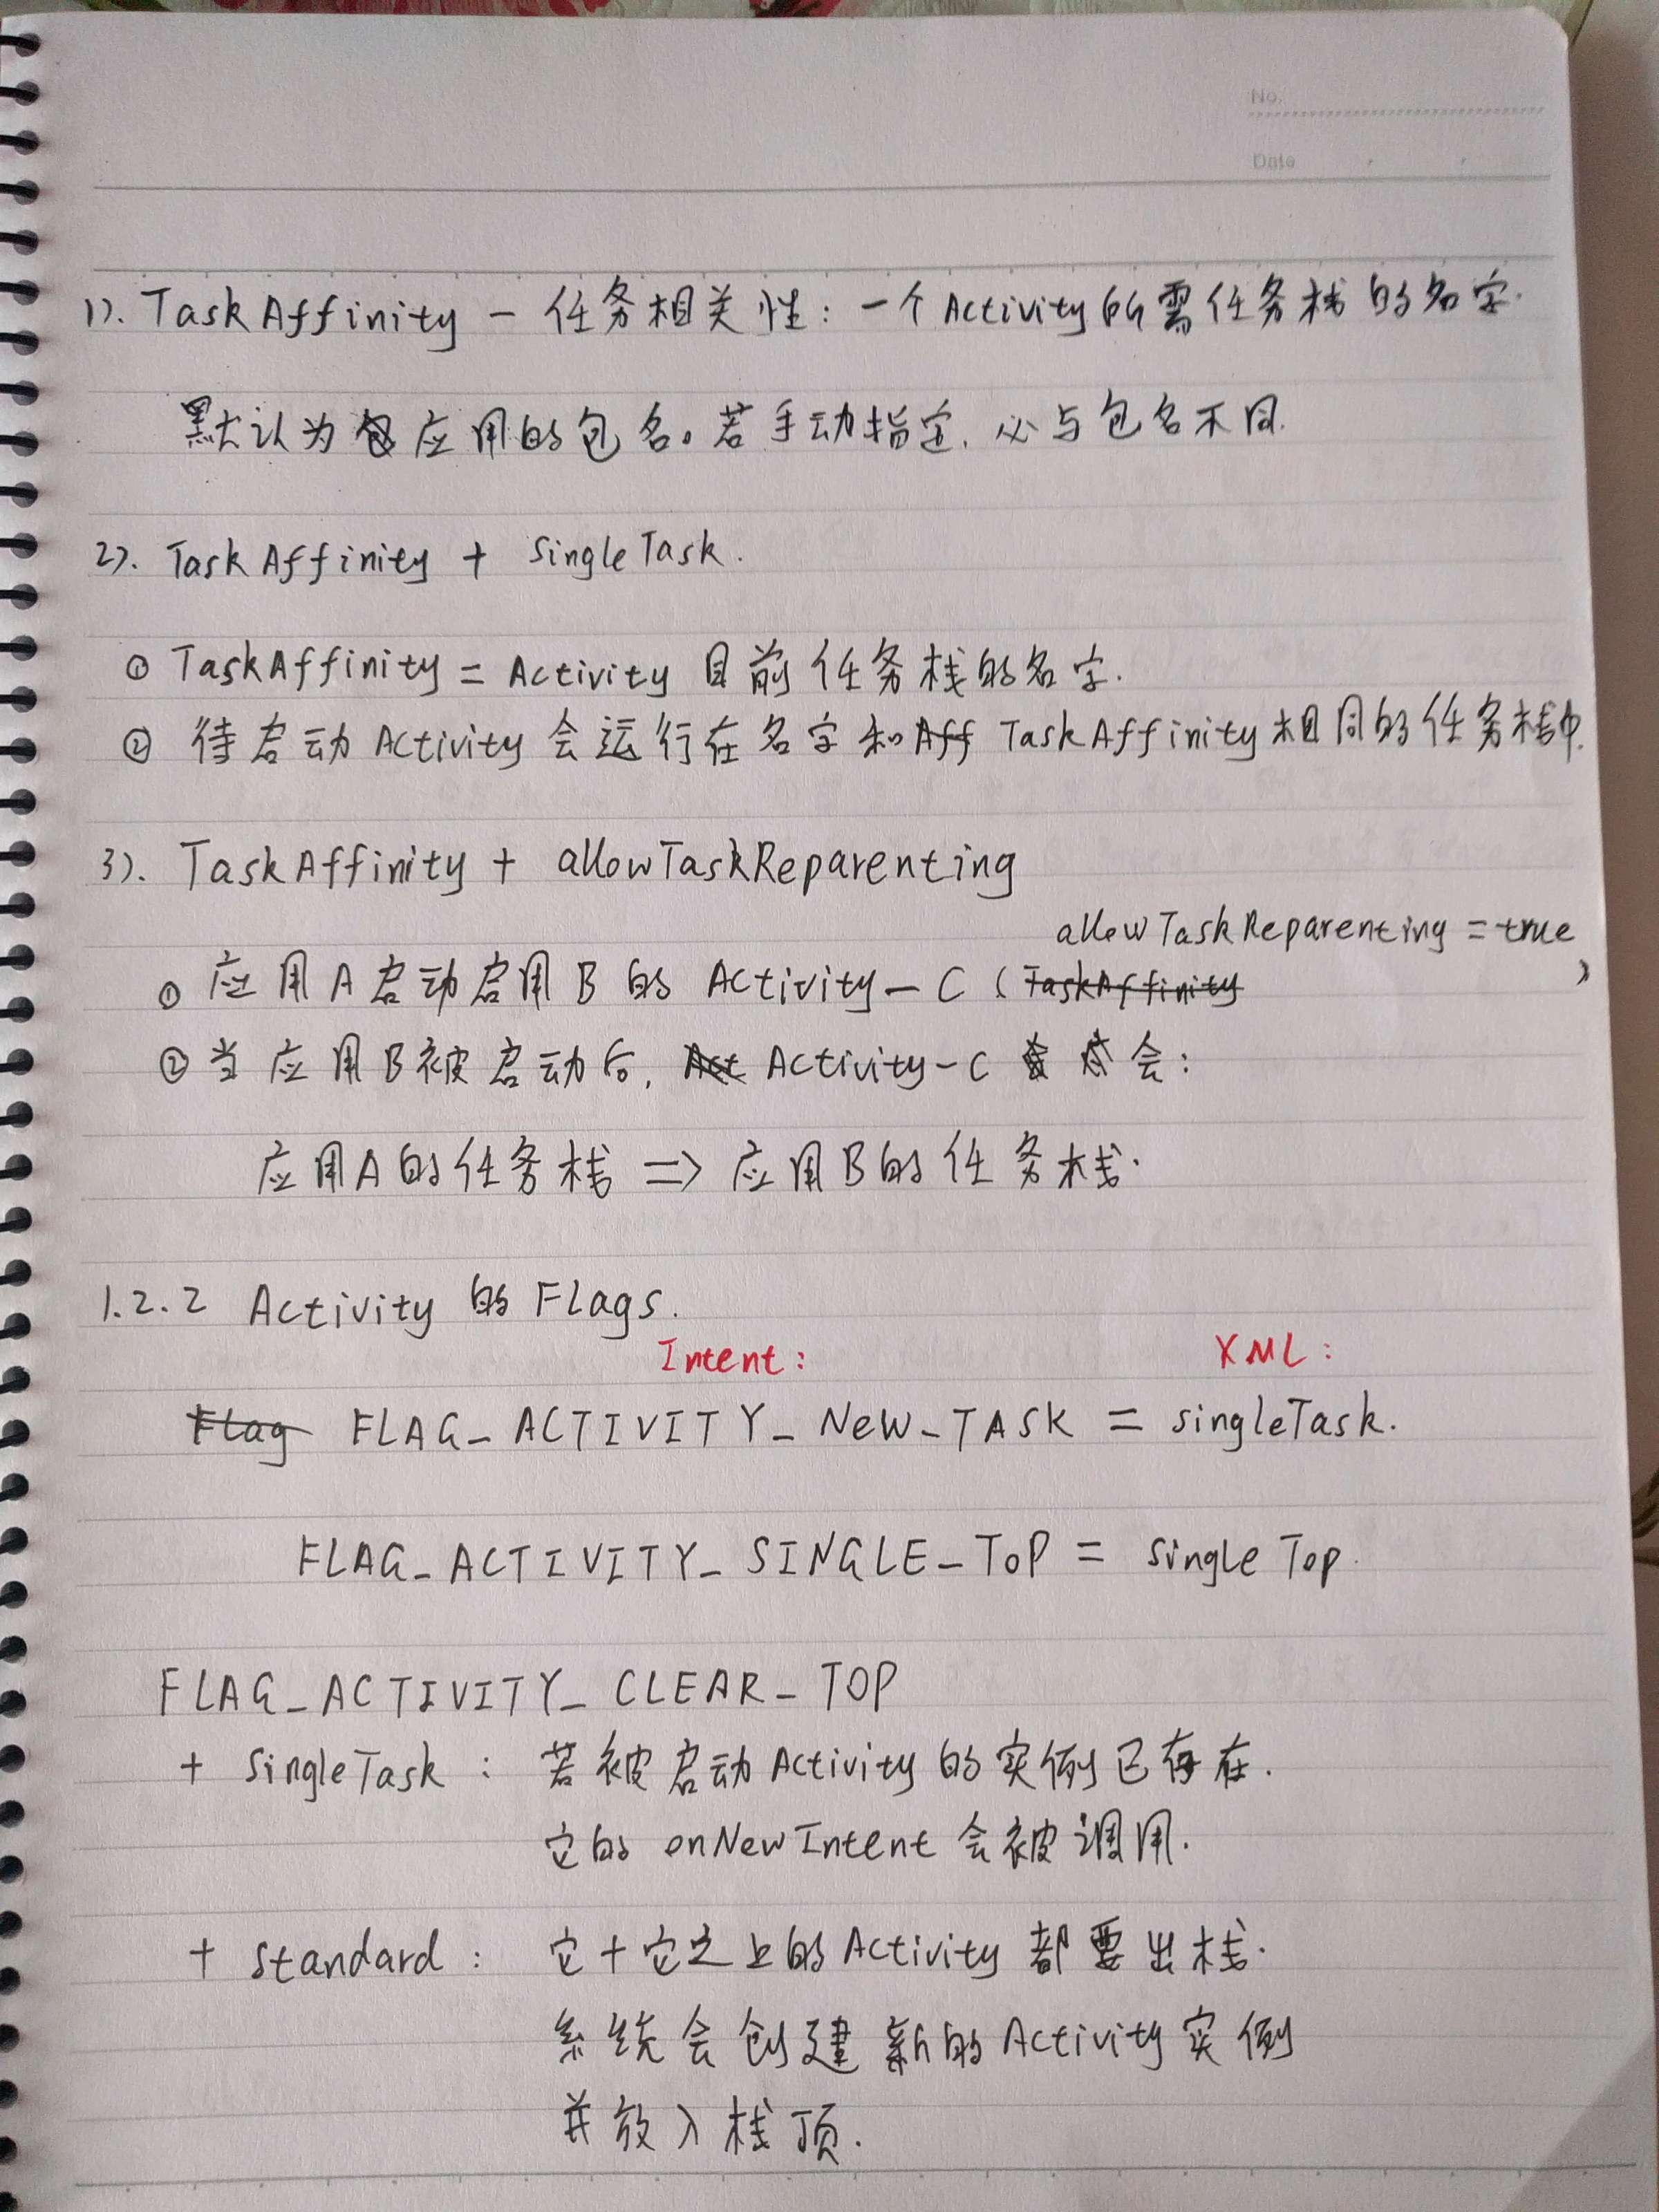 No.
Date
1). TaskAffinity - 任务相关性: 一个Activity所需任务栈的名字.
默认为应用的包名。若手动指定, 必与包名不同.
2). TaskAffinity + singleTask.
① TaskAffinity = Activity 目前任务栈的名字.
② 待启动 Activity 会运行在名字和 Aff TaskAffinity 相同的任务栈中.
3). TaskAffinity + allowTaskReparenting
allowTaskReparenting = true
① 应用A启动启用B的 Activity-C (TaskAffinity )
② 当应用B被启动后, Act Activity-C 会:
应用A的任务栈 => 应用B的任务栈.
1.2.2 Activity 的 Flags.
Intent: XML:
Flag FLAG_ACTIVITY_NEW_TASK = singleTask.
FLAG_ACTIVITY_SINGLE_TOP = singleTop.
FLAG_ACTIVITY_CLEAR_TOP
+ singleTask: 若被启动Activity的实例已存在.
它的 onNewIntent 会被调用.
+ standard: 它+它之上的Activity都要出栈.
系统会创建新的Activity实例
并放入栈顶.